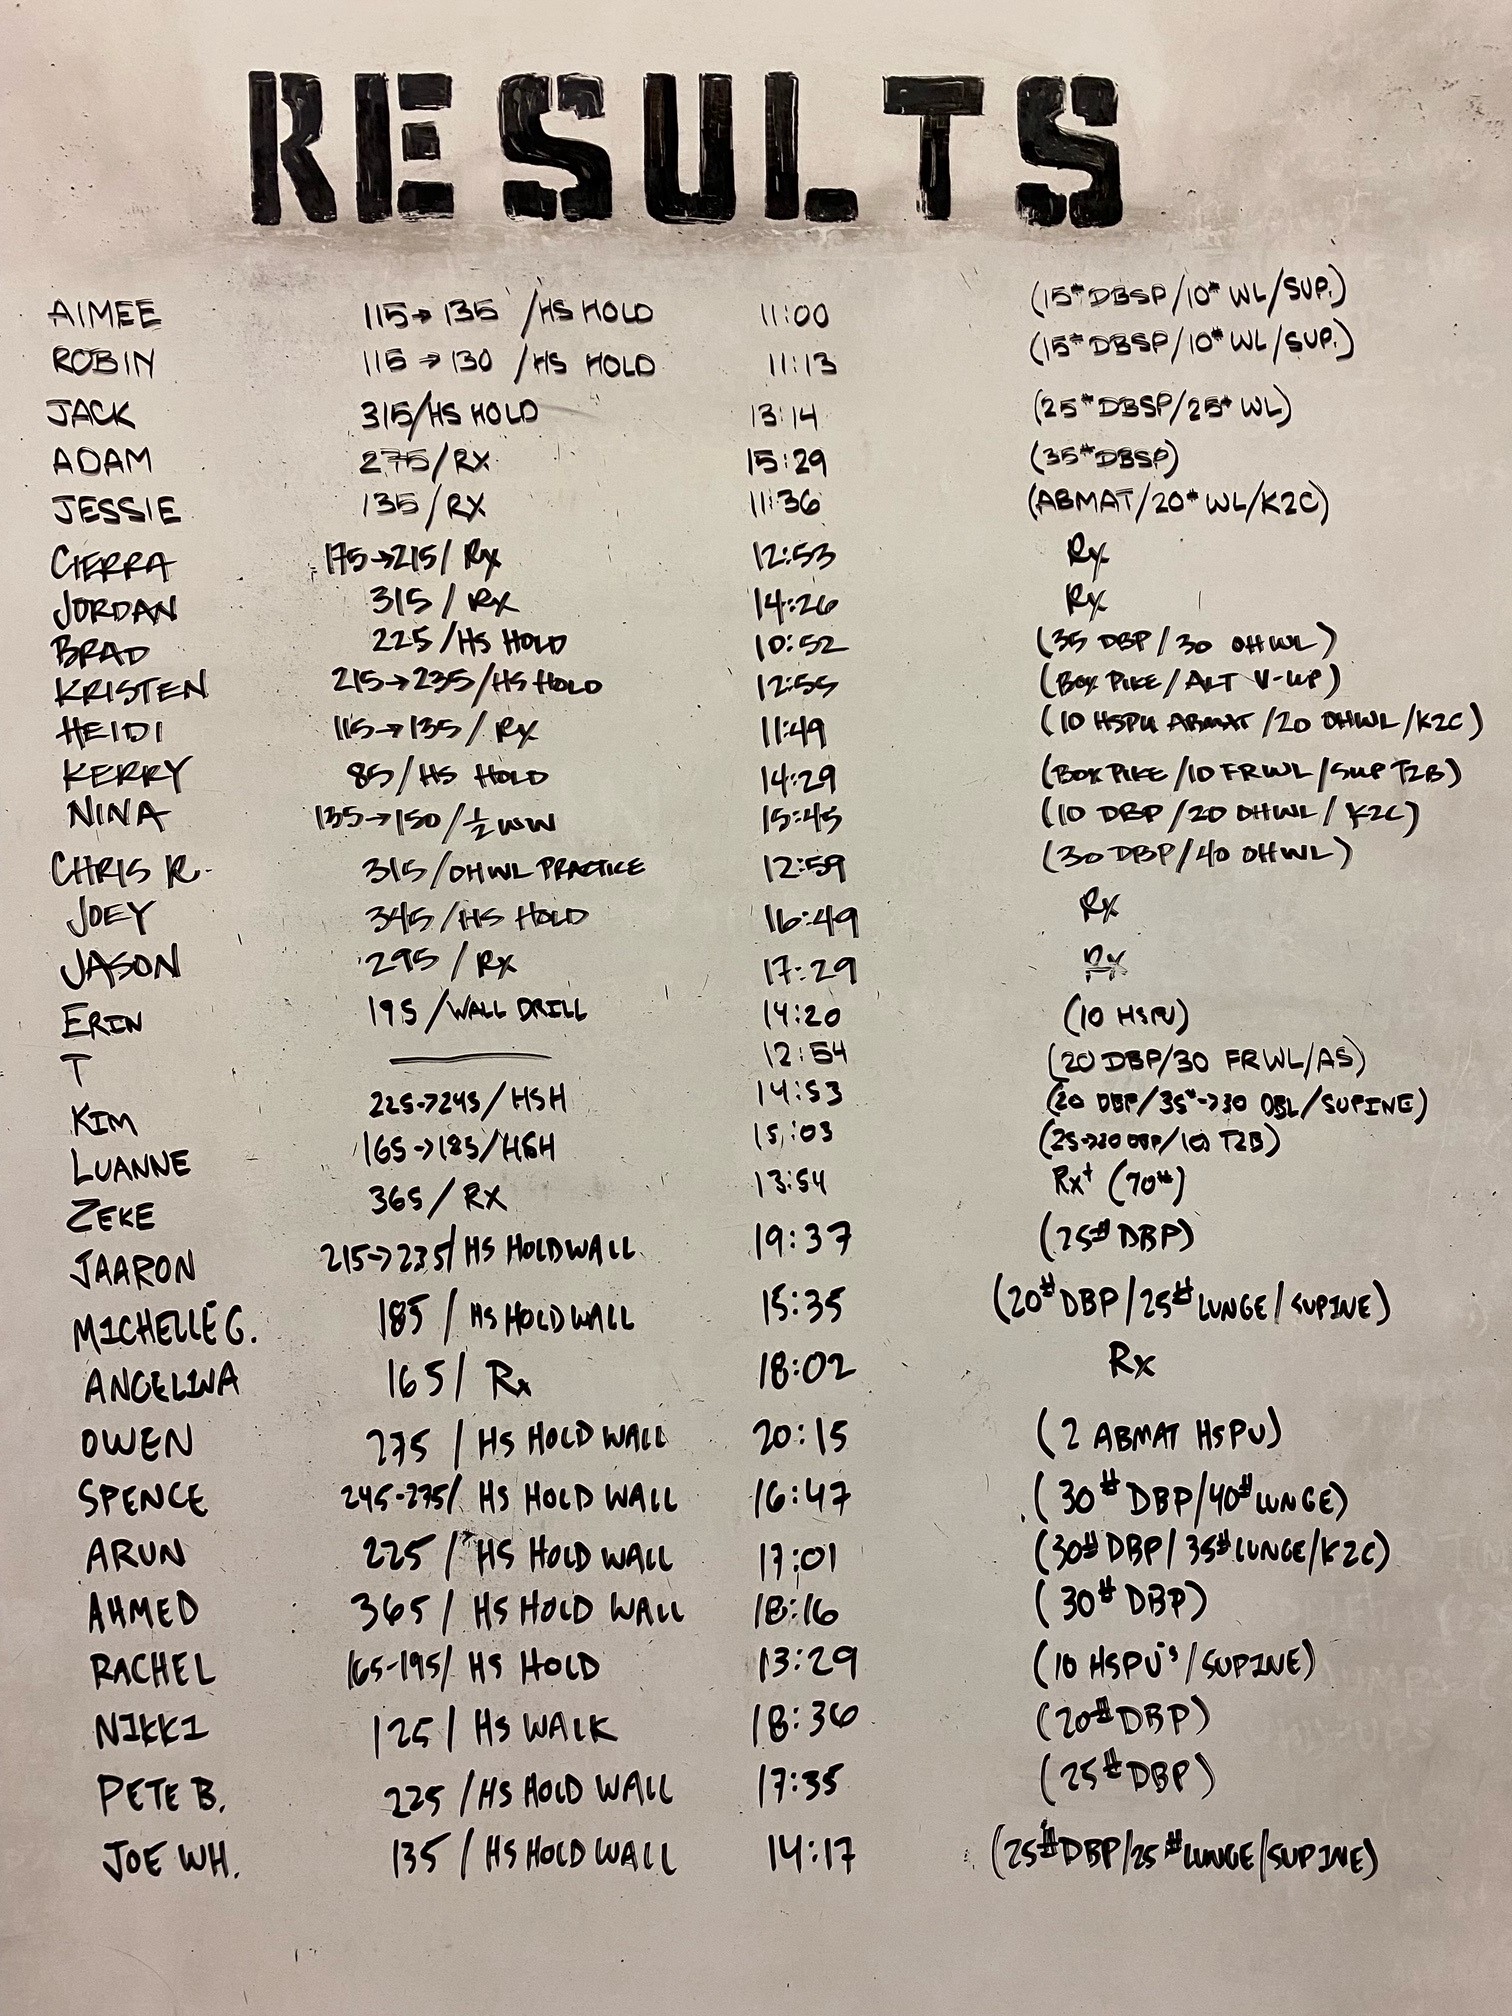 RESULTS
AIMEE 115→135 /HS HOLD 11:00 (15# DBSP/10# WL/SUP.)
ROBIN 115→130 /HS HOLD 11:13 (15# DBSP/10# WL/SUP.)
JACK 315/HS HOLD 13:14 (25# DBSP/25# WL)
ADAM 275/RX 15:29 (35# DBSP)
JESSIE 135/RX 11:36 (ABMAT/20# WL/K2C)
CIERRA 175→215/ Rx 12:53 Rx
JORDAN 315/ Rx 14:26 Rx
BRAD 225/HS HOLD 10:52 (35 DBP/30 OHWL)
KRISTEN 215→235/HS HOLD 12:55 (BOX PIKE/ALT V-UP)
HEIDI 115→135/ Rx 11:49 (10 HSPU ABMAT/20 OHWL/K2C)
KERRY 85/HS HOLD 14:29 (BOX PIKE/10 FRWL/SUP T2B)
NINA 135→150/½ WW 15:45 (10 DBP/20 OHWL/K2C)
CHRIS R. 315/OHWL PRACTICE 12:59 (30 DBP/40 OHWL)
JOEY 345/HS HOLD 16:49 Rx
JASON 295/Rx 17:29 Rx
ERIN 195/WALL DRILL 14:20 (10 HSPU)
T 12:54 (20 DBP/30 FRWL/AS)
KIM 225→245/HSH 14:53 (20 DBP/35#→30 OBL/SUPINE)
LUANNE 165→185/HSH 15:03 (25→20 DBP/10 T2B)
ZEKE 365/RX 13:54 Rx+ (70#)
JAARON 215→235/ HS HOLD WALL 19:37 (25# DBP)
MICHELLE G. 185 / HS HOLD WALL 15:35 (20# DBP/25# LUNGE/SUPINE)
ANGELINA 165/ Rx 18:02 Rx
OWEN 275 / HS HOLD WALL 20:15 (2 ABMAT HSPU)
SPENCE 245-275/ HS HOLD WALL 16:47 (30# DBP/40# LUNGE)
ARUN 225 / HS HOLD WALL 17:01 (30# DBP/35# LUNGE/K2C)
AHMED 365/ HS HOLD WALL 18:16 (30# DBP)
RACHEL 165-195/ HS HOLD 13:29 (10 HSPU's/SUPINE)
NIKKI 125/ HS WALK 18:36 (20# DBP)
PETE B. 225 /HS HOLD WALL 17:35 (25# DBP)
JOE WH. 135 /HS HOLD WALL 14:17 (25# DBP/25# LUNGE/SUPINE)